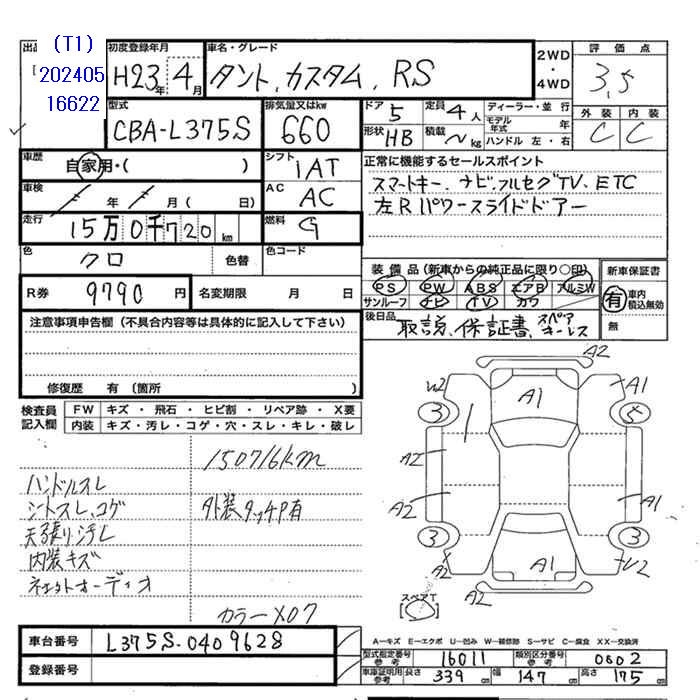 出品
(T1)
202405
16622
初度登録年月
H23年 4月
車名・グレード
タント.カスタム. RS
2WD
・
4WD
評価点
3,5
外装 内装
C C
型式
CBA-L375S
排気量又はkw
660
ドア 5
定員 4人
ディーラー・並行
モデル年式 年
形状 HB
積載 〜kg
ハンドル 左・右
車歴
自家用・( )
シフト
IAT
正常に機能するセールスポイント
スマートキー. ナビ.フルセグTV. ETC
左Rパワースライドドアー
車検
年 月 ( 日)
AC
AC
走行
15万0千720km
燃料
G
色
クロ
色替
色コード
装備品(新車からの純正品に限り○印)
PS PW ABS エアB アルミW
サンルーフ ナビ TV カワ
新車保証書
有 車内積込無効
無
R券 9790円
名変期限 月 日
後日品
取説、保証書、スペアキーレス
注意事項申告欄(不具合内容等は具体的に記入して下さい)
修復歴 有(箇所 )
検査員記入欄
FW キズ・飛石・ヒビ割・リペア跡・X要
内装 キズ・汚レ・コゲ・穴・スレ・キレ・破レ
150716km
ハンドルスレ
シートスレ.コゲ
外装タッチP有
天張り.汚レ
内装キズ
カラーX07
A2
W2
A1
A1
3
5
A2
A2
A1
3
3
A2
A1
U2
A2
スペアT
車台番号 L375S-0409628
登録番号
A−キズ E−エクボ U−凹み W−補修跡 S−サビ C−腐食 XX−交換済
型式指定番号参考 16011
類別区分番号参考 0602
車庫証明用参考 長さ 339cm 幅 147cm 高さ 175cm